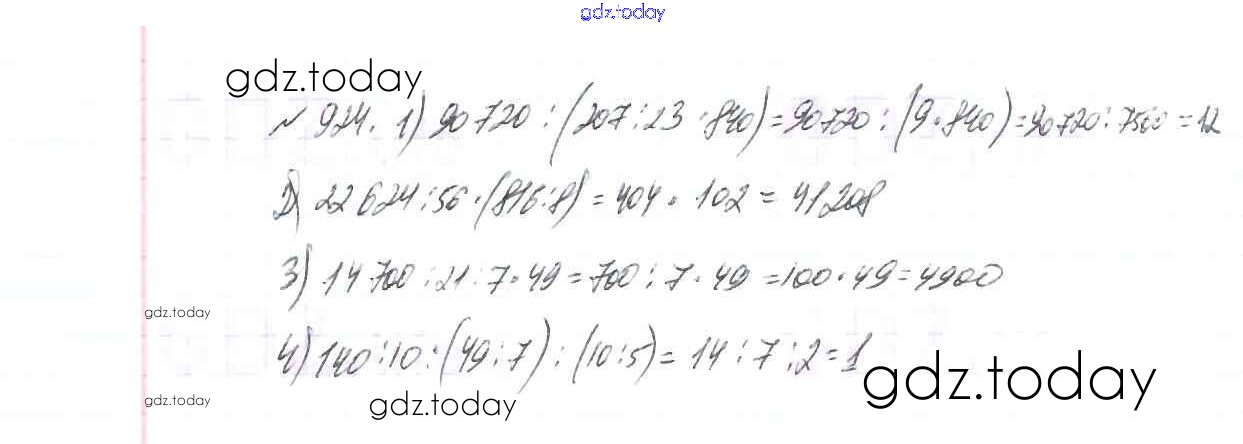 gdz.today
gdz.today
№ 924. 1) 90720 : (207 : 23 · 840) = 90720 : (9 · 840) = 90720 : 7560 = 12
2) 22624 : 56 · (816 : 8) = 404 · 102 = 41208
3) 14700 : 21 : 7 · 49 = 700 : 7 · 49 = 100 · 49 = 4900
gdz.today
4) 140 : 10 : (49 : 7) : (10 : 5) = 14 : 7 : 2 = 1
gdz.today
gdz.today
gdz.today